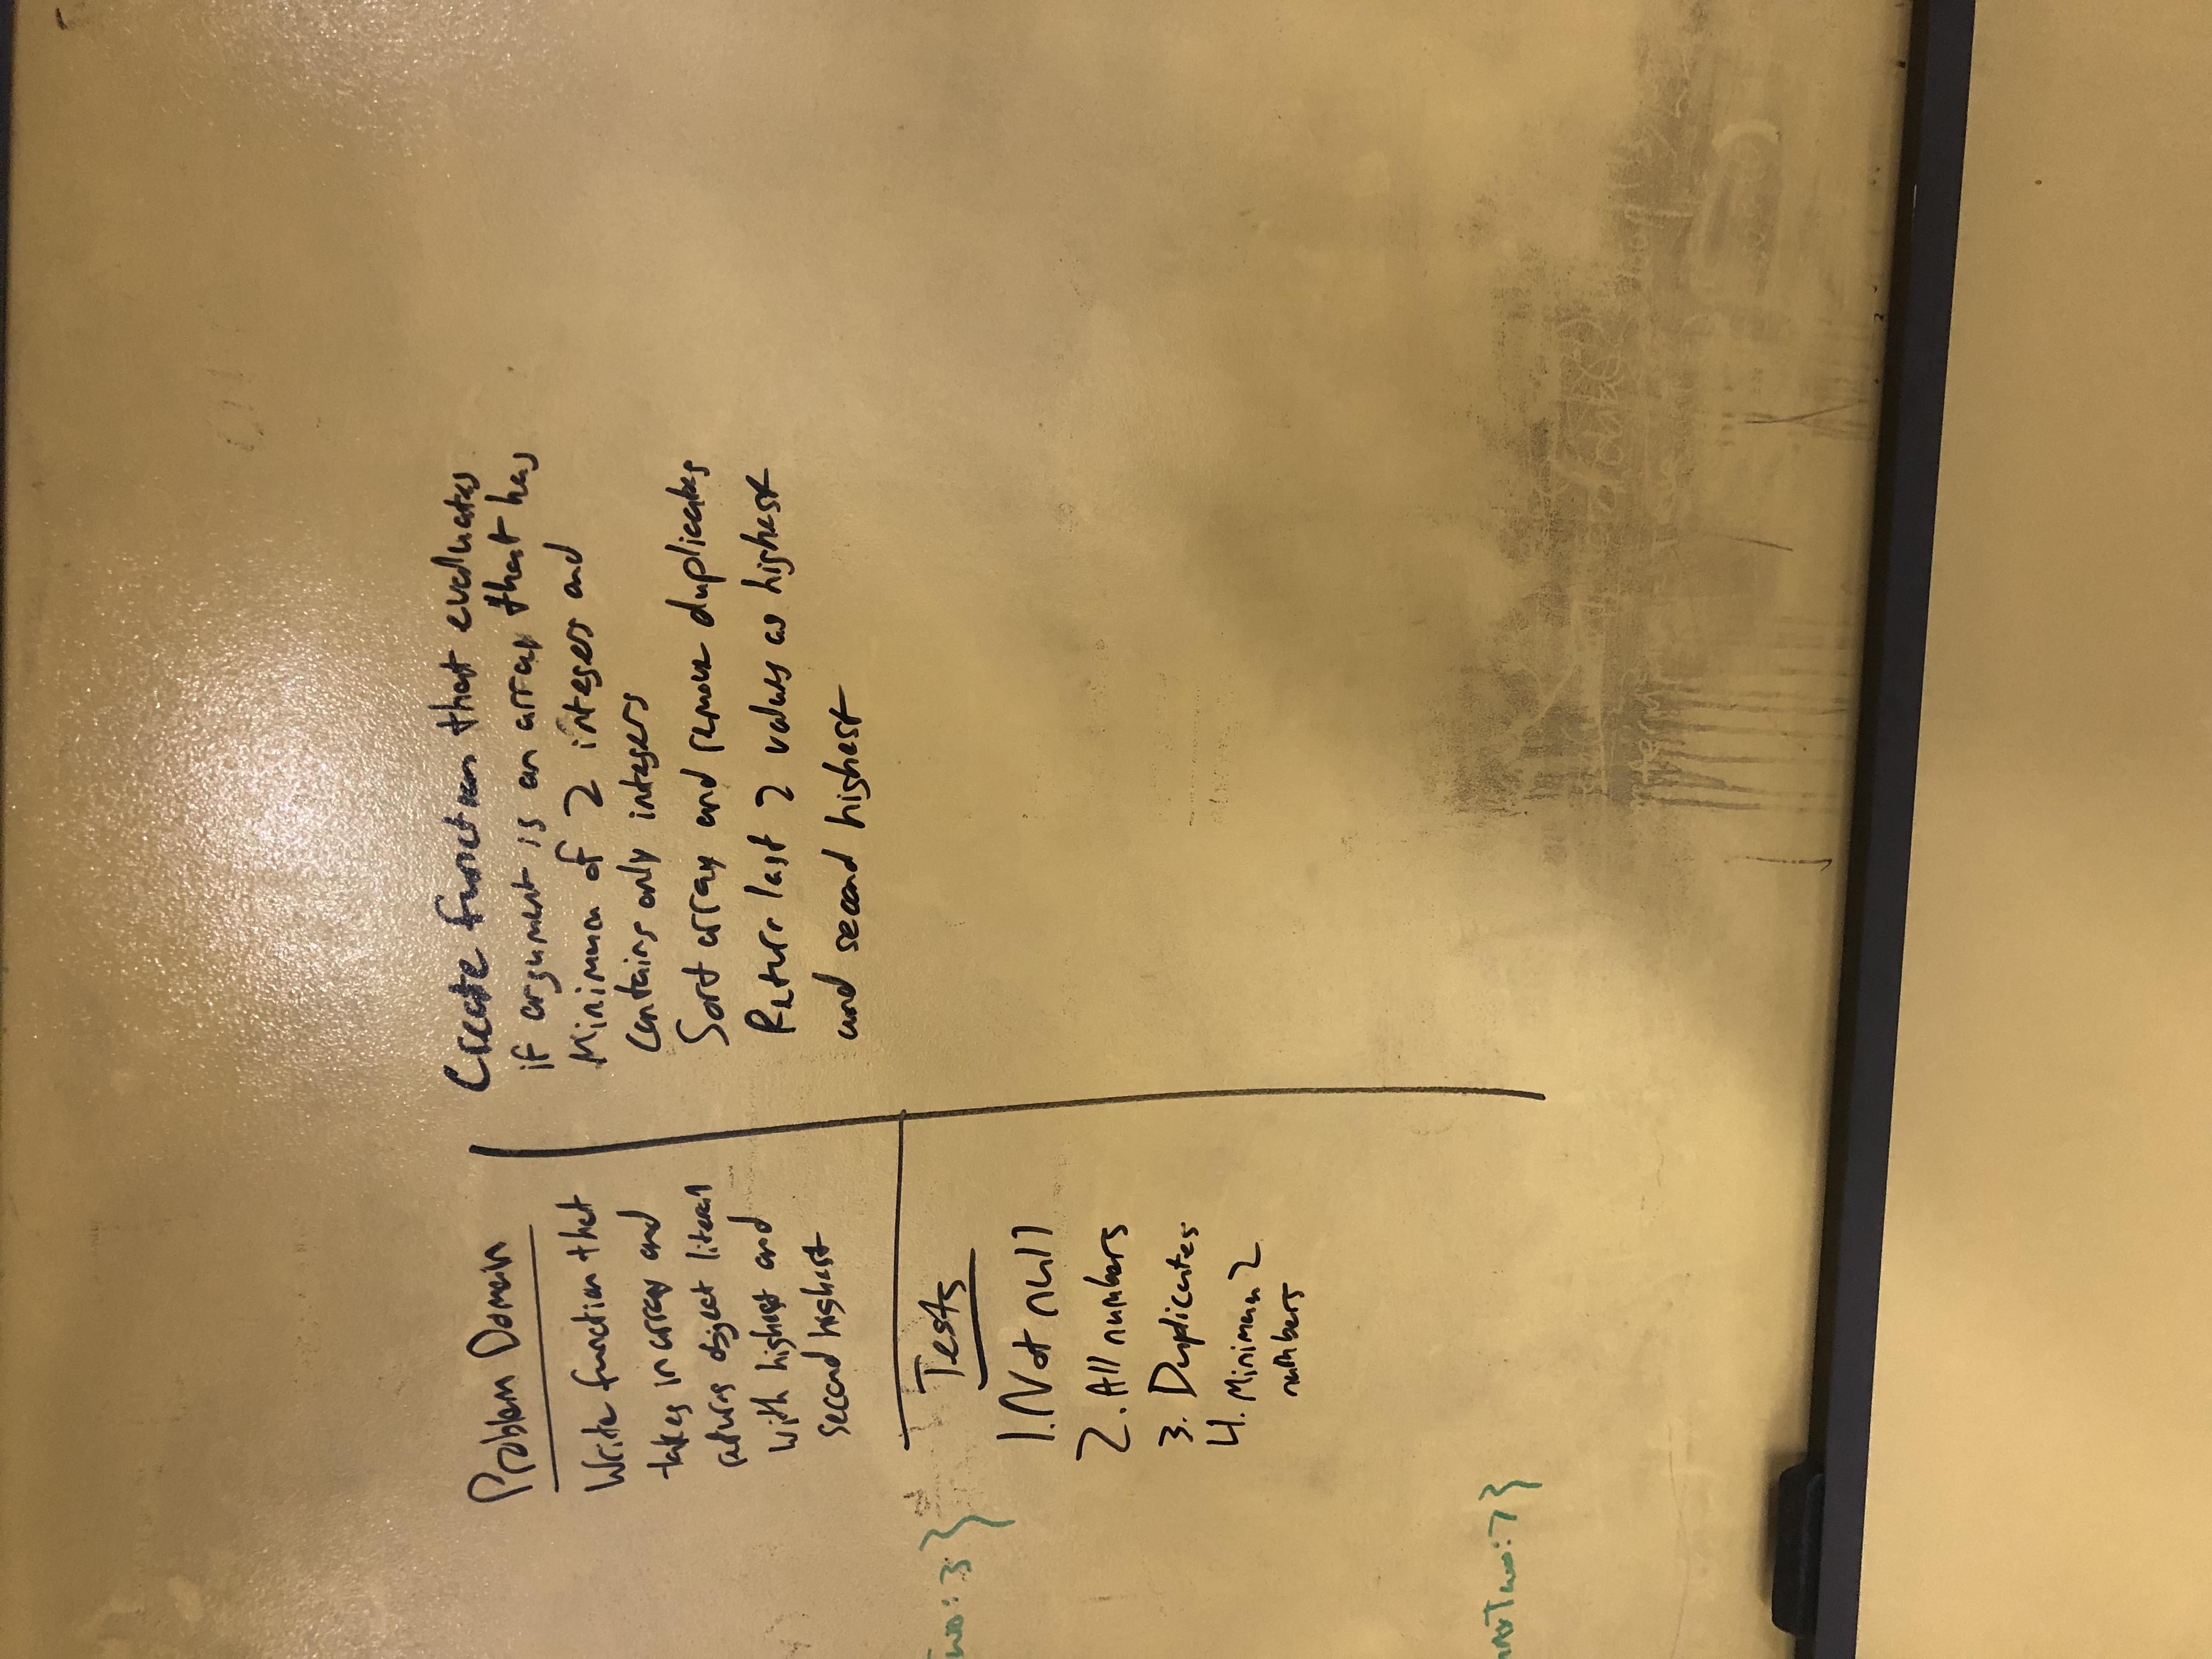 Problem Domain
Write function that
takes in array and
returns object literal
with highest and
second highest
Tests
1. Not null
2. All numbers
3. Duplicates
4. Minimum 2
numbers
Create function that evaluates
if argument is an array that has
Minimum of 2 integers and
contains only integers
Sort array and remove duplicates
Return last 2 values as highest
and second highest
wo: 3 }
Two: 7 }